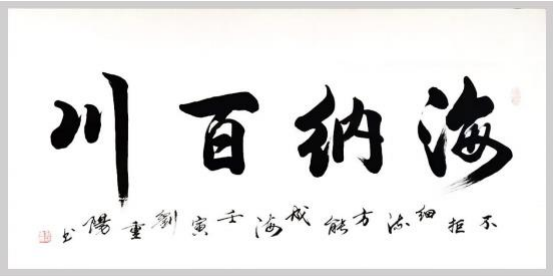 海纳百川
不拒细流方能成海壬寅劉重陽书